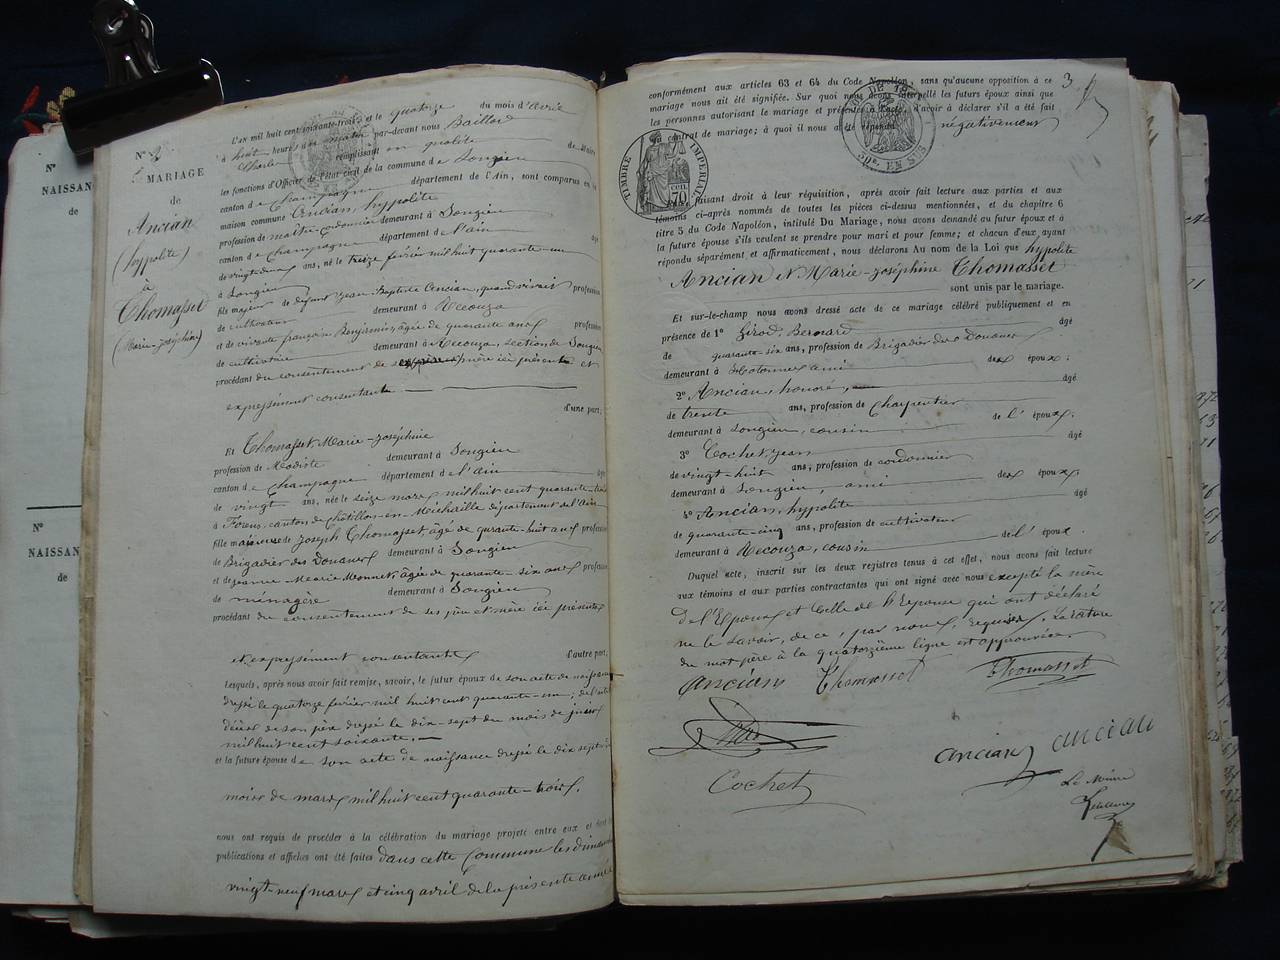 N°
NAISSAN
de
N°
NAISSAN
de
N° 3
MARIAGE
de
Ancian
(hyppolite)
à
Thomasset
(Marie-Joséphine)
L'an mil huit cent soixante-trois et le quatorze du mois d'avril
à huit heures du matin par-devant nous Baillod
Charles remplissant en qualité de Maire
les fonctions d'Officier de l'état civil de la commune de Songieu
canton de Champagne département de l'Ain, sont comparus en la
maison commune Ancian, hyppolite
profession de maître-cordonnier demeurant à Songieu
canton de Champagne département de l'ain âgé
de vingt-deux ans, né le treize février mil huit quarante-un
à Songieu
fils majeur de défunt Jean-Baptiste Ancian, quand vivait profession
de cultivateur demeurant à Recouza
et de vivante françoise Benjamin, âgée de quarante ans profession
de cultivatrice demeurant à Recouza, section de Songieu
procédant du consentement de sa mère ici présente et
expressément consentante
d'une part;
Et Thomasset, Marie-Joséphine
profession de Modiste demeurant à Songieu
canton de Champagne département de l'ain âgée
de vingt ans, née le seize mars mil huit cent quarante-trois
à Forens, canton de Châtillon-en-Michaille département de l'ain
fille majeure de Joseph Thomasset, âgé de quarante-huit ans profession
de Brigadier des Douanes demeurant à Songieu
et de Jeanne-Marie Monnet, âgée de quarante-six ans profession
de ménagère demeurant à Songieu
procédant du consentement de ses père et mère ici présents
et expressément consentants d'autre part,
Lesquels, après nous avoir fait remise, savoir, le futur époux de son acte de naissance
dressé le quatorze février mil huit cent quarante-un; de l'acte
décès de son père dressé le dix-sept du mois de juin
mil huit cent soixante.
et la future épouse de son acte de naissance dressé le dix sept du
mois de mars mil huit cent quarante-trois,
nous ont requis de procéder à la célébration du mariage projeté entre eux et dont
publications et affiches ont été faites dans cette Commune les dimanches
vingt-neuf mars et cinq avril de la présente année
3.
conformément aux articles 63 et 64 du Code Napoléon, sans qu'aucune opposition à ce
mariage nous ait été signifiée. Sur quoi nous avons interpellé les futurs époux ainsi que
les personnes autorisant le mariage et présentes à l'acte, d'avoir à déclarer s'il a été fait
un contrat de mariage; à quoi il nous a été répondu négativement
TIMBRE IMPERIAL
CEN. 70
50e. EN SUS
faisant droit à leur réquisition, après avoir fait lecture aux parties et aux
témoins ci-après nommés de toutes les pièces ci-dessus mentionnées, et du chapitre 6
titre 5 du Code Napoléon, intitulé Du Mariage, nous avons demandé au futur époux et à
la future épouse s'ils veulent se prendre pour mari et pour femme; et chacun d'eux, ayant
répondu séparément et affirmativement, nous déclarons Au nom de la Loi que hyppolite
Ancian et Marie-Joséphine Thomasset
sont unis par le mariage.
Et sur-le-champ nous avons dressé acte de ce mariage célébré publiquement et en
présence de 1° Girod, Bernard âgé
de quarante-six ans, profession de Brigadier de Douanes
demeurant à Hotonnes, ami des époux;
2° Ancian, honoré, âgé
de trente ans, profession de Charpentier
demeurant à Songieu, cousin de l'époux;
3° Cochet, Jean âgé
de vingt-huit ans, profession de cordonnier
demeurant à Songieu, ami des époux
4° Ancian, hypolite âgé
de quarante-cinq ans, profession de cultivateur
demeurant à Recouza, cousin de l'époux.
Duquel acte, inscrit sur les deux registres tenus à cet effet, nous avons fait lecture
aux témoins et aux parties contractantes qui ont signé avec nous excepté la mère
de l'Epoux et celle de l'Epouse qui ont déclaré
ne le savoir, de ce, par nous, requises. La rature
du mot père à la quatorzième ligne est approuvée.
Ancian Thomasset Thomasset
ancian ancian
Cochet
Le Maire